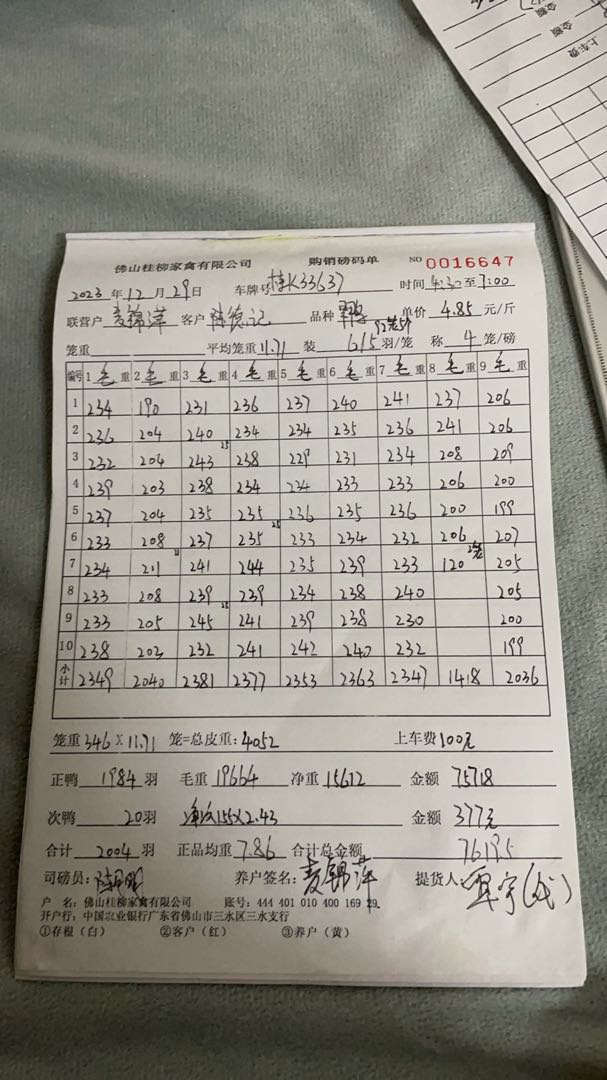 佛山桂柳家禽有限公司 购销磅码单 NO 0016647
2023 年 12 月 29 日 车牌号 K33637 时间 4:30 至 7:00
联营户 麦锦萍 客户 陈德记 品种 单价 4.85 元/斤
笼重 平均笼重 11.71 装 6/5 羽/笼 称 4 笼/磅
编号 1 毛 重 2 毛 重 3 毛 重 4 毛 重 5 毛 重 6 毛 重 7 毛 重 8 毛 重 9 毛 重
1 234 190 231 236 237 240 241 237 206
2 236 204 240 234 234 235 236 241 206
3 232 204 243 238 229 231 234 208 209
4 239 203 238 234 234 233 233 206 200
5 237 204 235 235 236 235 236 200 199
6 233 208 237 235 233 234 232 206 207
7 234 211 241 244 235 239 233 120 205
8 233 208 239 239 234 238 240 205
9 233 205 245 241 239 238 230 200
10 238 203 232 241 242 240 232 199
小计 2349 2040 2381 2377 2353 2363 2347 1418 2036
笼重 346 X 11.71 笼=总皮重: 4052 上车费 100元
正鸭 1984 羽 毛重 19664 净重 15612 金额 75718
次鸭 20 羽 155×2.43 金额 377元
合计 2004 羽 正品均重 7.86 合计总金额 76195
司磅员: 养户签名: 麦锦萍 提货人:
户 名: 佛山桂柳家禽有限公司 账号: 444 401 010 400 169 29
开户行: 中国农业银行广东省佛山市三水区三水支行
①存根（白） ②客户（红） ③养户（黄）